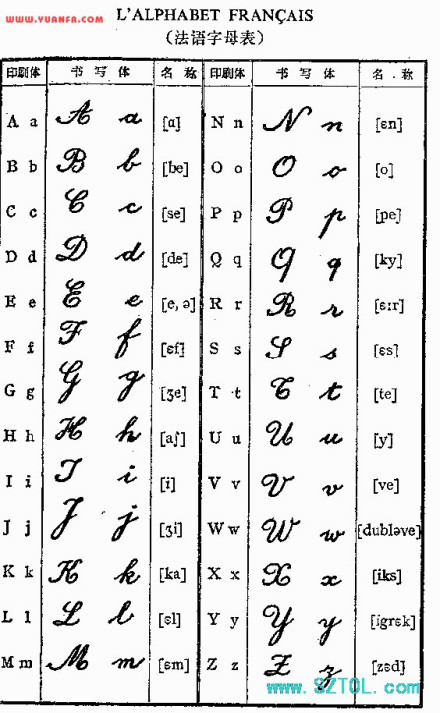 www.YUANFA.com
L'ALPHABET FRANÇAIS
(法语字母表)
印刷体 书写体 名称 印刷体 书写体 名称
A a A a [ɑ] N n N n [ɛn]
B b B b [be] O o O o [o]
C c C c [se] P p P p [pe]
D d D d [de] Q q Q q [ky]
E e E e [e, ə] R r R r [ɛ:r]
F f F f [ɛf] S s S s [ɛs]
G g G g [ʒe] T t T t [te]
H h H h [aʃ] U u U u [y]
I i I i [i] V v V v [ve]
J j J j [ʒi] W w W w [dubləve]
K k K k [ka] X x X x [iks]
L l L l [ɛl] Y y Y y [igrɛk]
M m M m [ɛm] Z z Z z [zɛd]
www.SZTOL.com